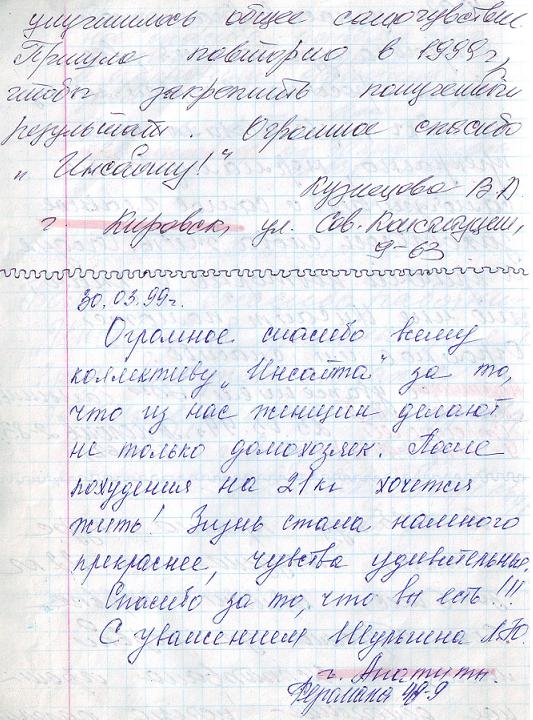 улучшилось общее самочувствие.
Пришла повторно в 1999г,
чтобы закрепить полученный
результат. Огромное спасибо
„Инсайту!“
Кузнецова В.Д.
г. Кировск, ул. Сов. Конституции,
9-63
30.03.99г.
Огромное спасибо всему
коллективу „Инсайта“ за то,
что из нас женщин делают
не только домохозяек. После
похудения на 21кг хочется
жить! Жизнь стала намного
прекраснее, чувства удивительные.
Спасибо за то, что вы есть!!!
С уважением Шульгина Л.Ю.
г. Апатиты.
Ферсмана 48-9